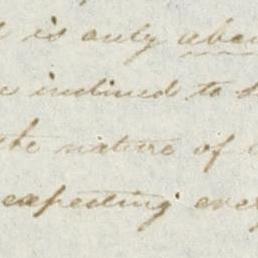 is only
inclined to
the nature of
expecting